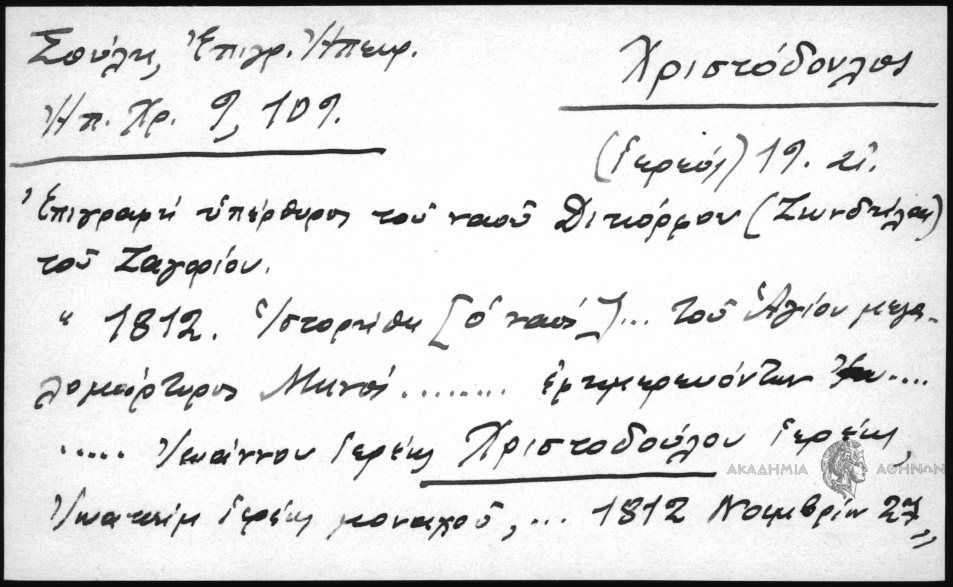 Σούλη, Ἐπιγρ. Ἠπειρ.
Ἠπ. Χρ. 9, 109.
Χριστόδουλος
(ἱερεύς) 19. αἰ.
Ἐπιγραφή ὑπέρθυρος τοῦ ναοῦ Δικόρφου (Ζωνδίλας)
τοῦ Ζαγορίου.
" 1812. Ἱστορήθη [ὁ ναός]... τοῦ Ἁγίου μεγα-
λομάρτυρος Μηνᾶ ........ ἐφημερευόντων ....
..... Ἰωάννου ἱερέως Χριστοδούλου ἱερέως,
Ἰωακείμ ἱερέως μοναχοῦ, ... 1812 Νοεμβρίου 27"
ΑΚΑΔΗΜΙΑ ΑΘΗΝΩΝ